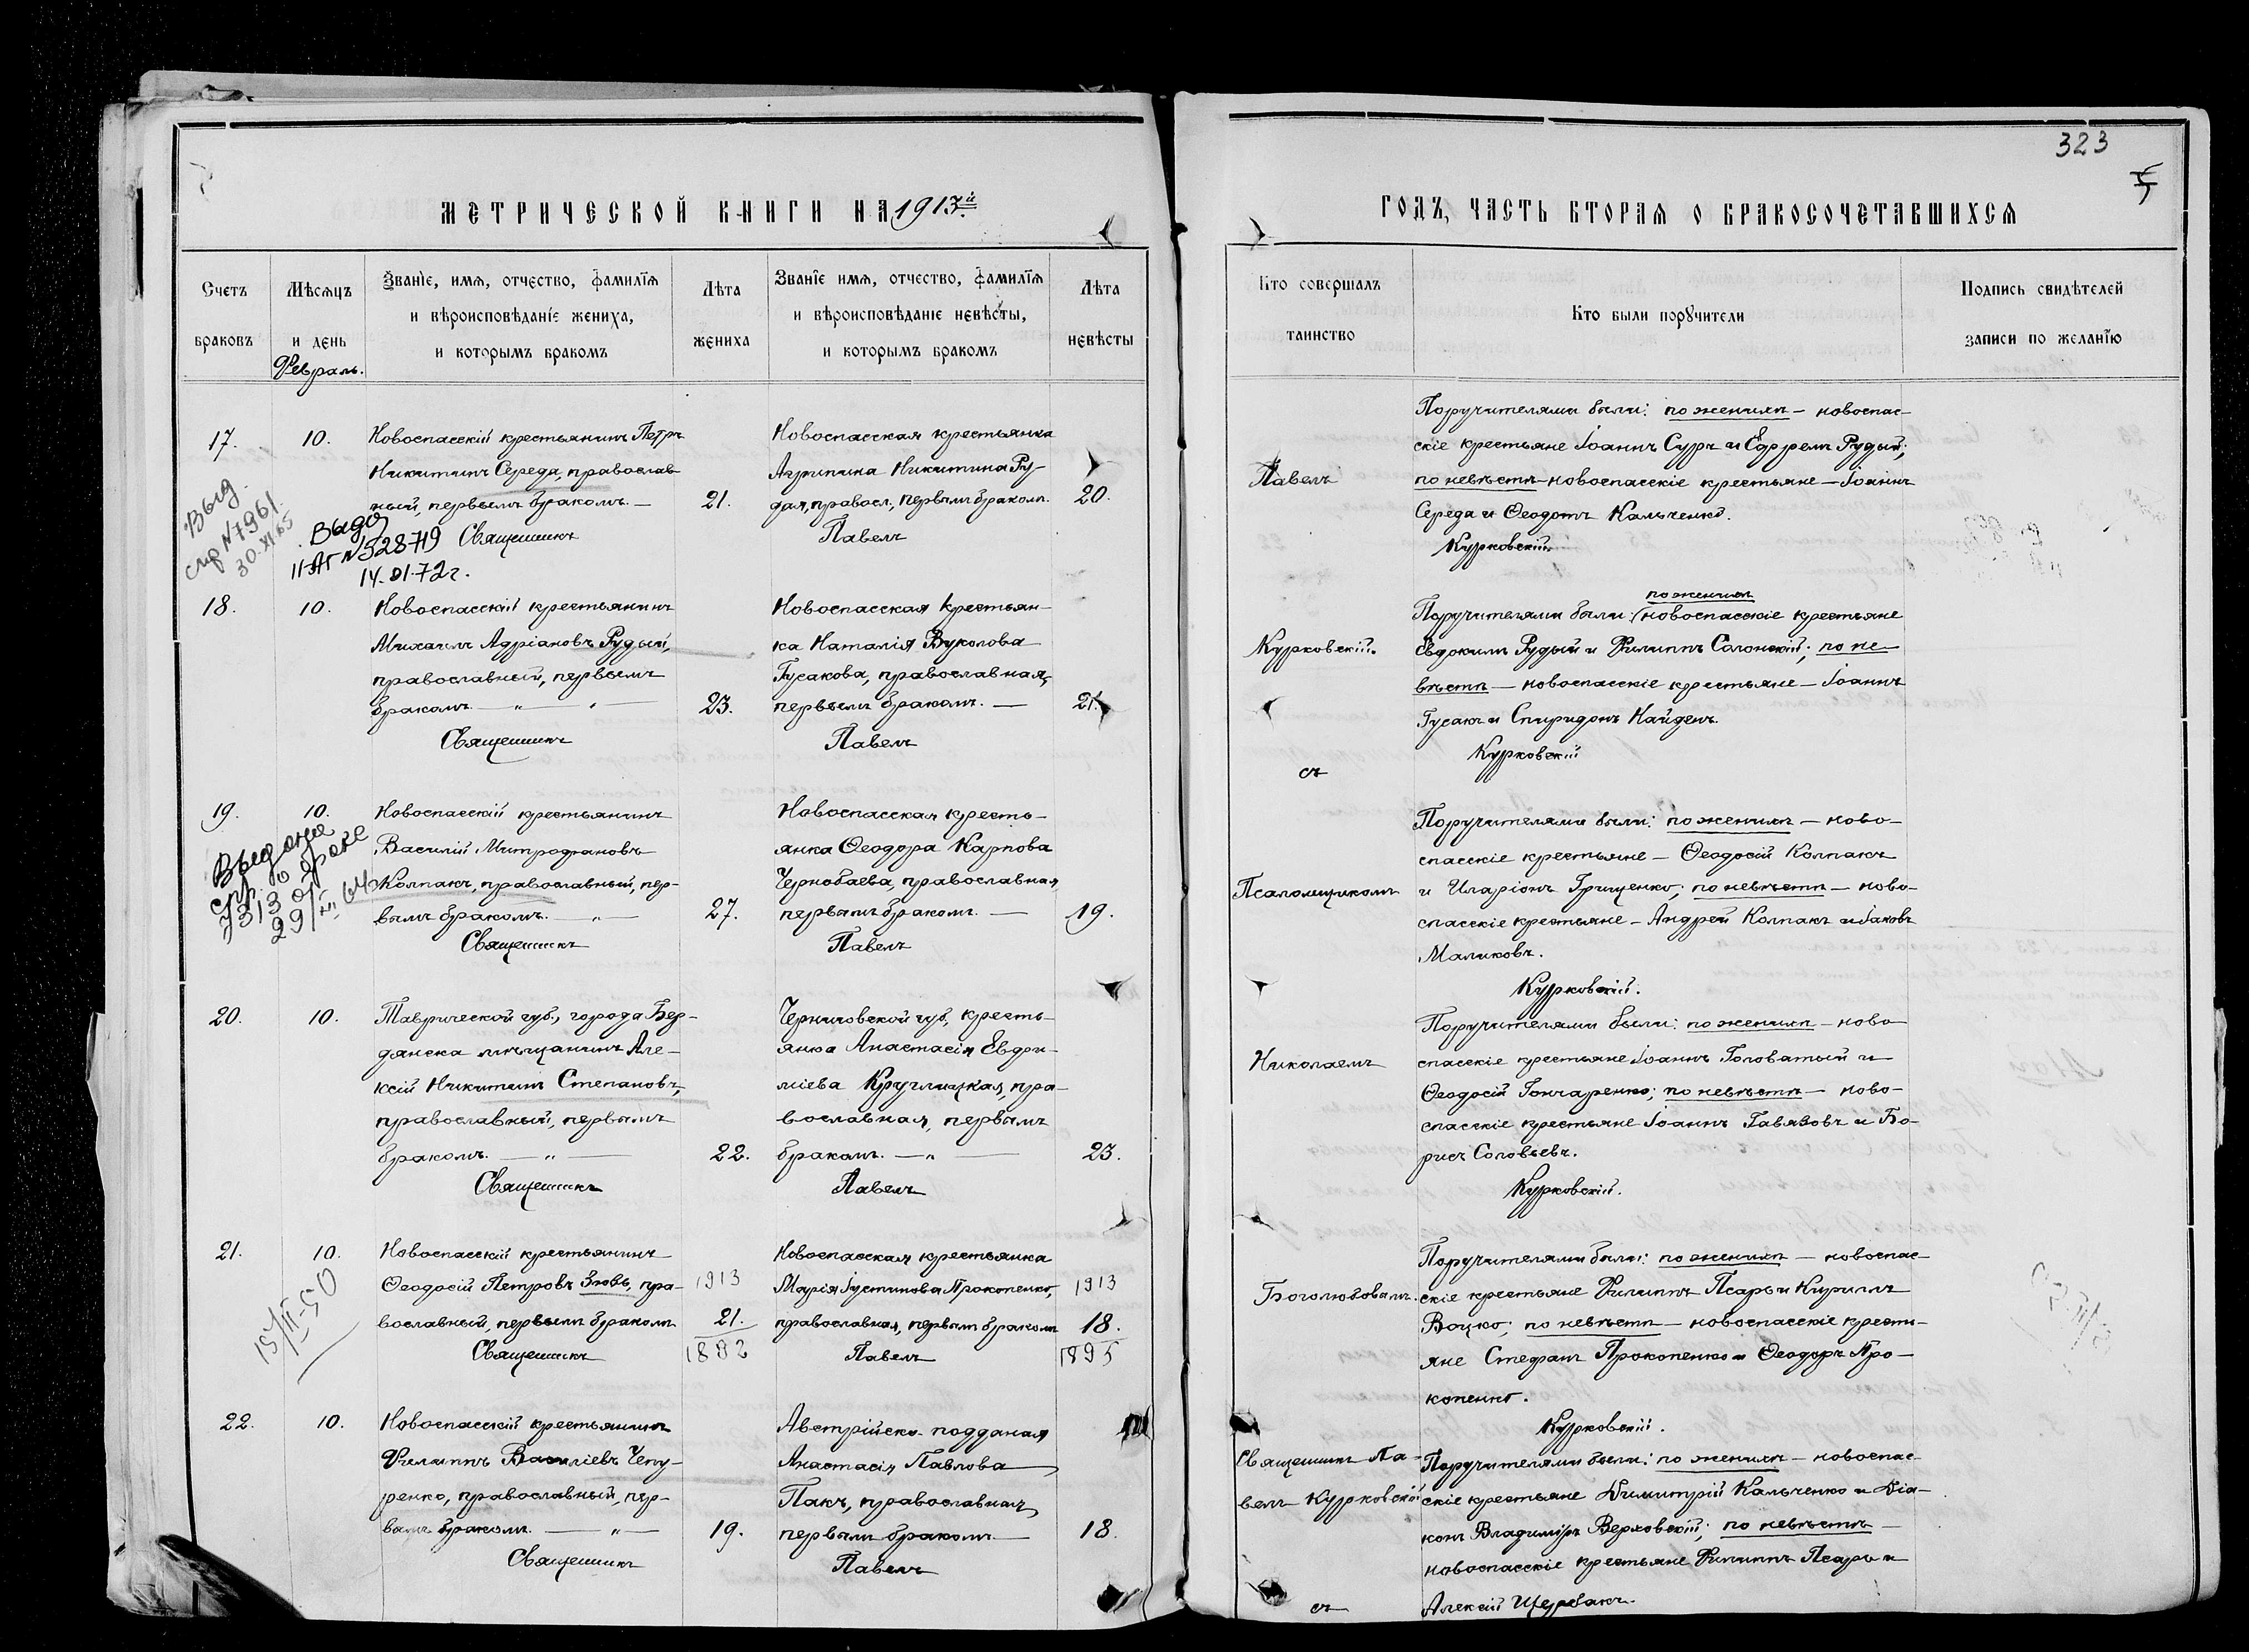 323
МЕТРИЧЕСКОЙ КНИГИ НА 1913й.
ГОДЪ, ЧАСТЬ ВТОРАЯ О БРАКОСОЧЕТАВШИХСЯ
Счетъ браковъ
Мѣсяцъ и день
Февраль.
Званіе, имя, отчество, фамилія
и вѣроисповѣданіе жениха,
и которымъ бракомъ
Лѣта жениха
Званіе имя, отчество, фамилія
и вѣроисповѣданіе невѣсты,
и которымъ бракомъ
Лѣта невѣсты
Кто совершалъ таинство
Кто были поручители
Подпись свидѣтелей
записи по желанію
17.
10.
Новоспасскій крестьянинъ Петръ
Никитинъ Середа, православ-
ный, первымъ бракомъ. —
21.
Священникъ
Новоспасская крестьянка
Агрипина Никитина Ру-
дая, правосл., первымъ бракомъ.
20.
Павелъ
Выд.
спр N7961
30.XI.65
Выдо
II-АГ N528719
14.01.72 г.
Павелъ
Поручителями были: по женихѣ — новоспас-
скіе крестьяне Іоаннъ Сурръ и Ефремъ Рудый;
по невѣстѣ — новоспасскіе крестьяне — Іоаннъ
Середа и Ѳеодотъ Кальченко.
Курковскій.
18.
10.
Новоспасскій крестьянинъ
Михаилъ Адріановъ Рудый,
православный, первымъ
бракомъ. — „ —
23.
Священникъ
Новоспасская крестьян-
ка Наталія Вуколова
Гусакова, православная,
первымъ бракомъ. —
21.
Павелъ
Курковскій.
съ
по женихѣ
Поручителями были: (новоспасскіе крестьяне
Евдокимъ Рудый и Филиппъ Солонскій; по не-
вѣстѣ — новоспасскіе крестьяне — Іоаннъ
Гусакъ и Спиридонъ Найденъ.
Курковскій
19.
10.
Выдана
спр. о браке
7313 от
29/XII 64
Новоспасскій крестьянинъ
Василій Митрофановъ
Колпакъ, православный, пер-
вымъ бракомъ. — „ —
27.
Священникъ
Новоспасская кресть-
янка Ѳеодора Карпова
Чернобаева, православная,
первымъ бракомъ. —
19.
Павелъ
Псаломщикомъ
Поручителями были: по женихѣ — ново-
спасскіе крестьяне — Ѳеодосій Колпакъ
и Иларіонъ Грищенко; по невѣстѣ — ново-
спасскіе крестьяне — Андрей Колпакъ и Іаковъ
Маликовъ.
Курковскій.
20.
10.
Таврической губ., города Бер-
дянска мѣщанинъ Але-
ксій Никитинъ Степановъ,
православный, первымъ
бракомъ. — „ —
22.
Священникъ
Черниговской губ., кресть-
янка Анастасія Евфи-
міева Круглицкая, пра-
вославная, первымъ
бракомъ. — „ —
23.
Павелъ
Николаемъ
Поручителями были: по женихѣ — ново-
спасскіе крестьяне Іоаннъ Головатый и
Ѳеодосій Гончаренко; по невѣстѣ — ново-
спасскіе крестьяне Іоаннъ Гавязовъ и Бо-
рисъ Соловьевъ.
Курковскій.
21.
10.
15/III-50
Новоспасскій крестьянинъ
Ѳеодосій Петровъ Зновъ, пра-
вославный, первымъ бракомъ
1913
21.
1892
Священникъ
Новоспасская крестьянка
Марія Іустинова Прокопенко,
православная, первымъ бракомъ
1913
18.
1895
Павелъ
Боголюбовымъ.
Поручителями были: по женихѣ — новоспас-
скіе крестьяне Филиппъ Псарь и Кириллъ
Воцко; по невѣстѣ — новоспасскіе крестьяне
яне Стефанъ Прокопенко и Ѳеодоръ Про-
копенко.
Курковскій.
22.
10.
Новоспасскій крестьянинъ
Филиппъ Василіевъ Чепу-
ренко, православный, пер-
вымъ бракомъ. — „ —
19.
Священникъ
Австрійско-подданая
Анастасія Павлова
Пакъ, православная,
первымъ бракомъ. —
18.
Павелъ
Священникъ Па-
велъ Курковскій
съ
Поручителями были: по женихѣ — новоспас-
скіе крестьяне Димитрій Кальченко и Діа-
конъ Владиміръ Верховскій; по невѣстѣ —
новоспасскіе крестьяне Филиппъ Псарь и
Алексій Щербакъ.